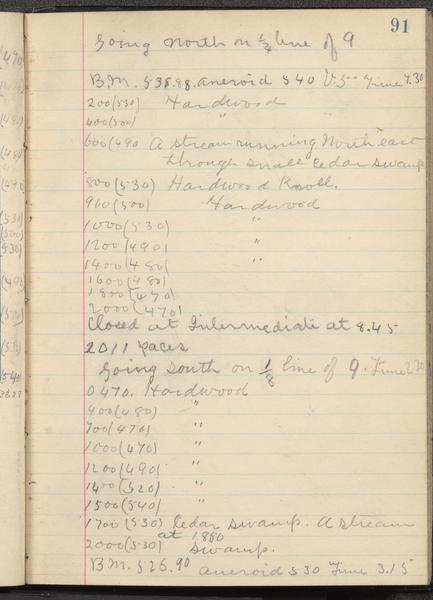 91
Going North on 1/4 line of 9
B.M. 538.88. aneroid 540 Time 7.30
200 (530) Hardwood
400 (500) "
600 (490 A stream running North east
through small Cedar swamp
800 (530) Hardwood Knoll.
900 (500) Hardwood
1000 (530) "
1200 (490) "
1400 (480) "
1600 (480)
1800 (470)
2000 (470)
Closed at Intermediate at 8.45
2011 paces
Going South on 1/8 line of 9. Time
0 470. Hardwood
400 (480) "
700 (470) "
1000 (470) "
1200 (490) "
1400 (520) "
1500 (540) "
1700 (530) Cedar swamp. A stream
at 1850
2000 (530) swamp.
B.M. 526.90 aneroid 530 Time 3.15